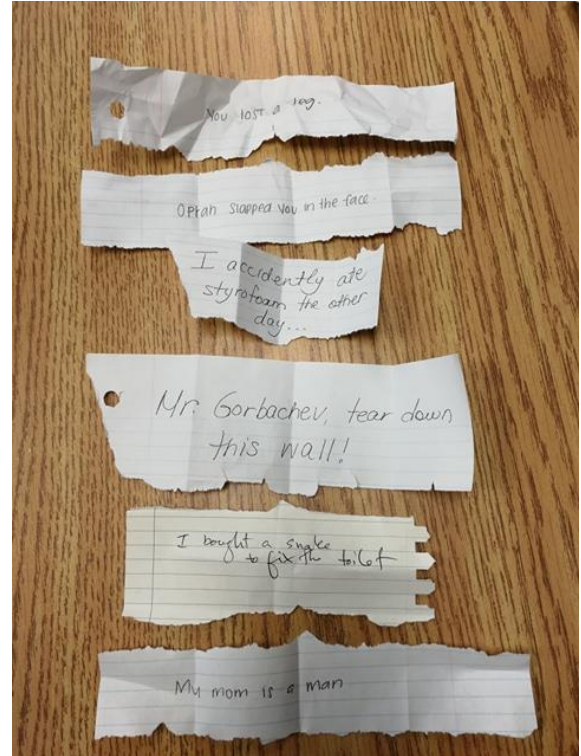 You lost a leg.
Oprah slapped you in the face.
I accidently ate
styrofoam the other
day...
Mr. Gorbachev, tear down
this wall!
I bought a snake
to fix the toilet
My mom is a man